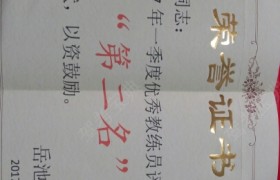 荣誉证书
同志：
年一季度优秀教练员评
“第二名”
，以资鼓励。
岳池
201